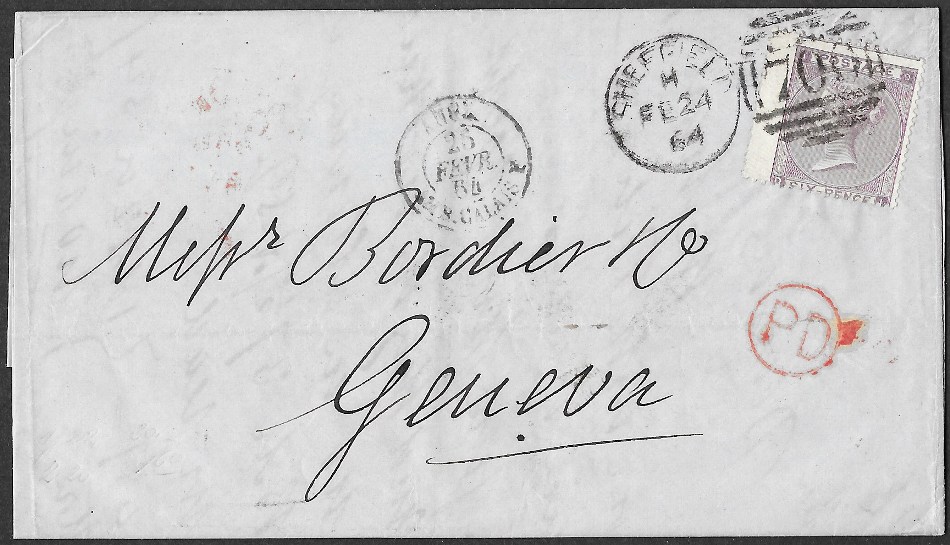 SHEFFIELD
H
FE 24
64
POSTAGE
SIX PENCE
25
FEVR.
64
CALAIS
Messrs Bordier & Co
Geneva
PD